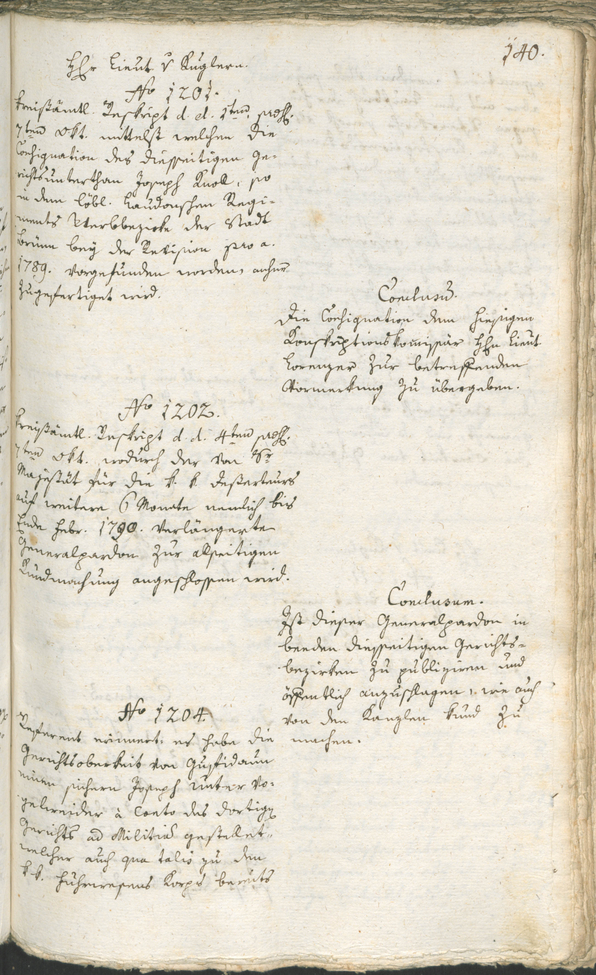 140.
Hr Lieut v Kuglern.
No 1201.
Kreißämtl. Reskript d. d. 1ten, prs.
7ten Okt. mittelst welchen die
Consignation des diesseitigen Ge-
richtsunterthan Joseph Knoll, so
in dem löbl. Laudonschen Regi-
ments Werbbezirke der Stadt
Brünn beÿ der Revision pro a.
1789. vorgefunden worden, anher
zugefertiget wird.
Conclusum.
Die Consignation dem hiesigen
Konskriptionskommissär Hrn Lieut
Lorenzer zur betreffenden
Vormerkung zu übergeben.
No 1202.
Kreißämtl. Reskript d. d. 4ten prs.
7ten Okt. wodurch der von Sr
Majestät für die k. k. Deserteurs
auf weitere 6 Monate nemlich bis
Ende Febr. 1790. verlängerte
Generalpardon zur allseitigen
Kundmachung angeschlossen wird.
Conclusum.
Ist dieser Generalpardon in
beeden diesseitigen Gerichts-
bezirken zu publiziren und
öffentlich anzuschlagen, wie auch
von den Kanzlen kund zu
machen.
No 1204.
Referent erinnert, es habe die
Gerichtsobrikeit von Gufidaun
einen sichern Joseph Unter Vo-
gelweider à Conto des dortigen
Gerichts ad Militiam gestellet,
welcher auch qua talis zu dem
k. k. Fuhrwesens Korps bereits